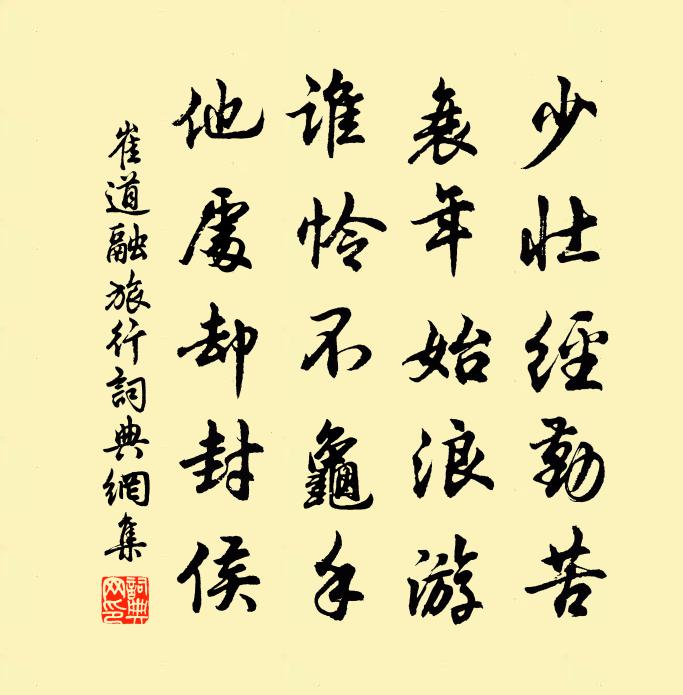 少壯經勤苦
衰年始浪游
誰怜不龜手
他處卻封侯
崔道融旅行詞典網集
詞典網印